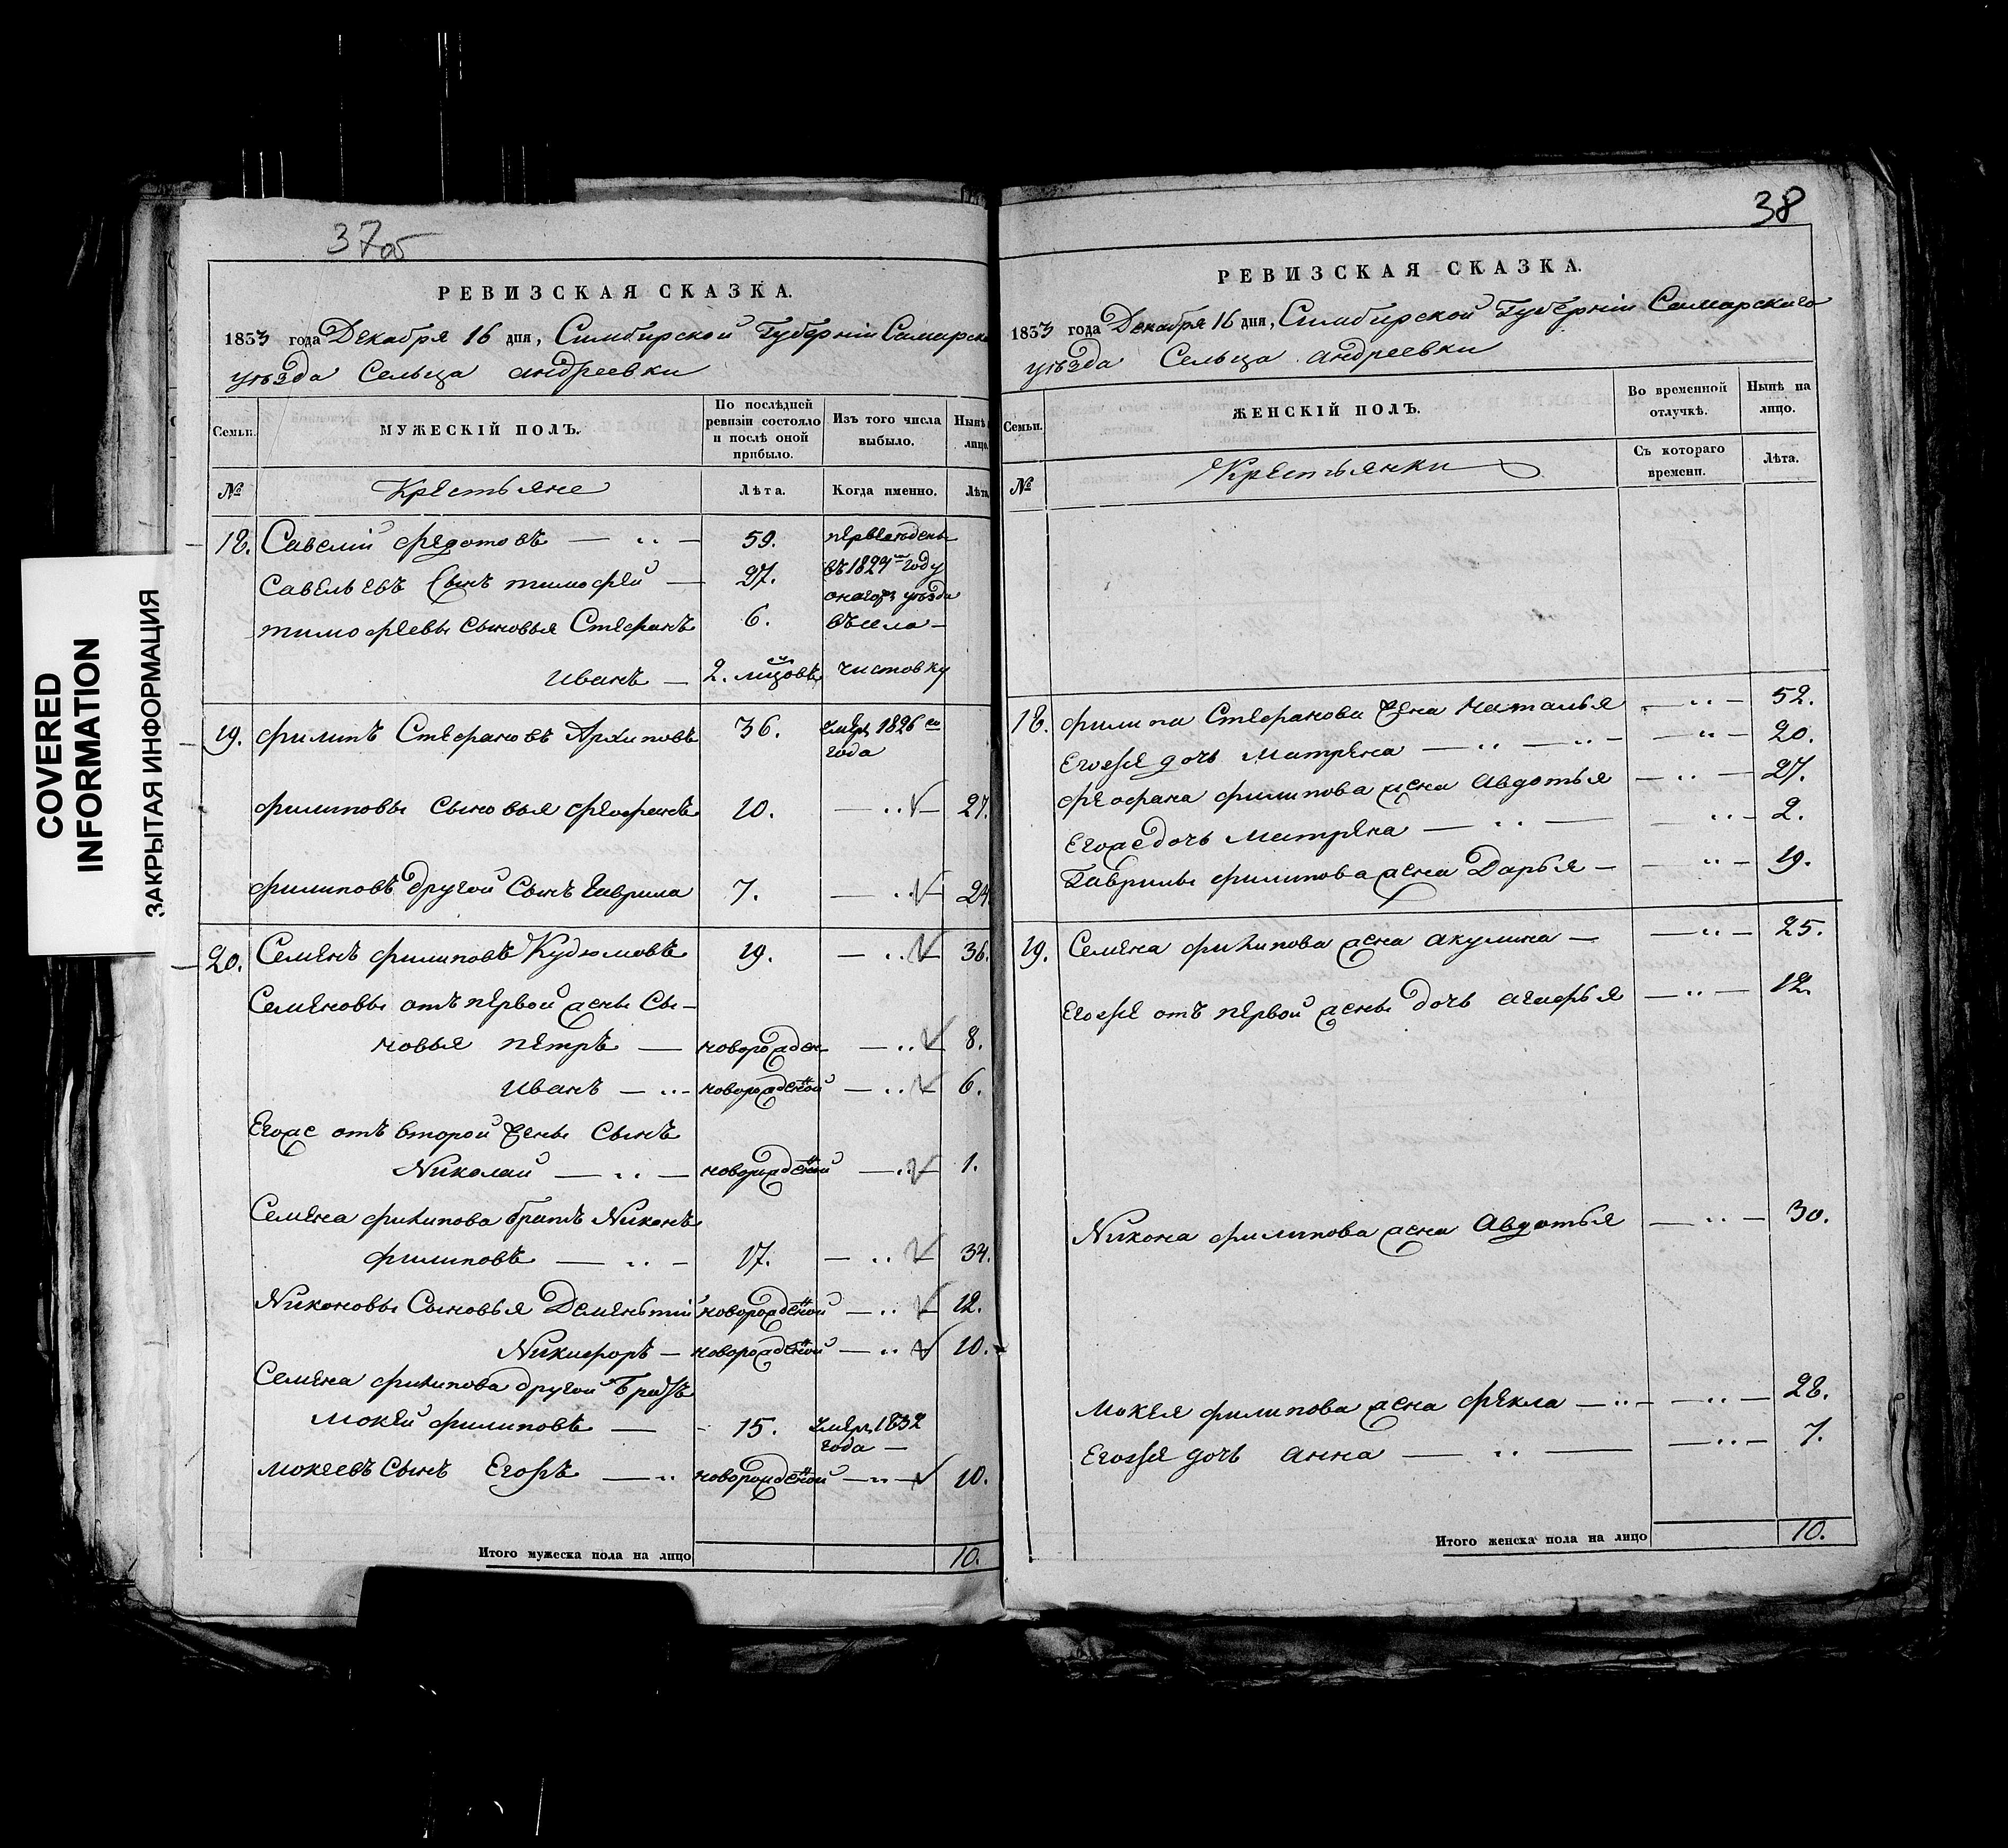 COVERED
INFORMATION
ЗАКРЫТАЯ ИНФОРМАЦИЯ
37об
РЕВИЗСКАЯ СКАЗКА.
1833 года Декабря 16 дня, Симбирской Губерніи Самарска
уѣзда Сельца Андреевки
Семьи. МУЖЕСКІЙ ПОЛЪ. По послѣдней ревизіи состояло и послѣ оной прибыло. Изъ того числа выбыло. Нынѣ лицо.
№ Крестьяне Лѣта. Когда именно. Лѣта
18. Савелій Федотовъ — „ — 59. переведены
Савельевъ Сынъ Тимофей — 27. въ 1824м году
онагожъ уѣзда
Тимофеевы сыновья Стефанъ 6. въ села —
Иванъ — 2. мѣсецовъ чистовку
19. Филипъ Стефановъ Архиповъ 36. умеръ 1826го
года
Филиповы сыновья Феофанъ 10. — „ — 27.
Филиповъ другой сынъ Гаврила 7. — „ — 24.
20. Семенъ Филиповъ Кудюмовъ 19. — „ — 36.
Семеновы отъ первой жены Сы-
новья Петръ — новорожден — „ — 8.
Иванъ — „ - новорожденной — „ — 6.
Егоже отъ второй жены сынъ
Николай — „ — новорожденной — „ — 1.
Семена Филипова братъ Никонъ
Филиповъ — „ — 17. — „ — 34.
Никоновы Сыновья Дементій новорожденной — „ — 12.
Никифоръ — новорожденной — „ — 10.
Семена Филипова другой Братъ
Мокей Филиповъ — 15. умеръ 1832
года —
Мокеевъ сынъ Егоръ — „ новорожденной — „ — 10.
Итого мужеска пола на лицо 10.
38
РЕВИЗСКАЯ СКАЗКА.
1833 года Декабря 16 дня, Симбирской Губерніи Самарскаго
уѣзда Сельца Андреевки
Семьи. ЖЕНСКІЙ ПОЛЪ. Во временной отлучкѣ. Нынѣ на лицо.
№ Крестьянки Съ котораго времени. Лѣта.
18. Филипа Стефанова жена Наталья — „ — 52.
Егоже дочь Матрена — „ — „ - — „ — 20.
Феофана Филипова жена Авдотья — „ — 27.
Егоже дочь Матрена — „ — — „ — 2.
Гаврилы Филипова жена Дарья — — „ — 19.
19. Семена Филипова жена Акулина — — „ — 25.
Егоже отъ первой жены дочь Агафья — „ — 12.
Никона Филипова жена Авдотья — „ — 30.
Мокея Филипова жена Фекла — „ — — „ — 28.
Егоже дочь Анна — „ — — „ — 7.
Итого женска пола на лицо 10.